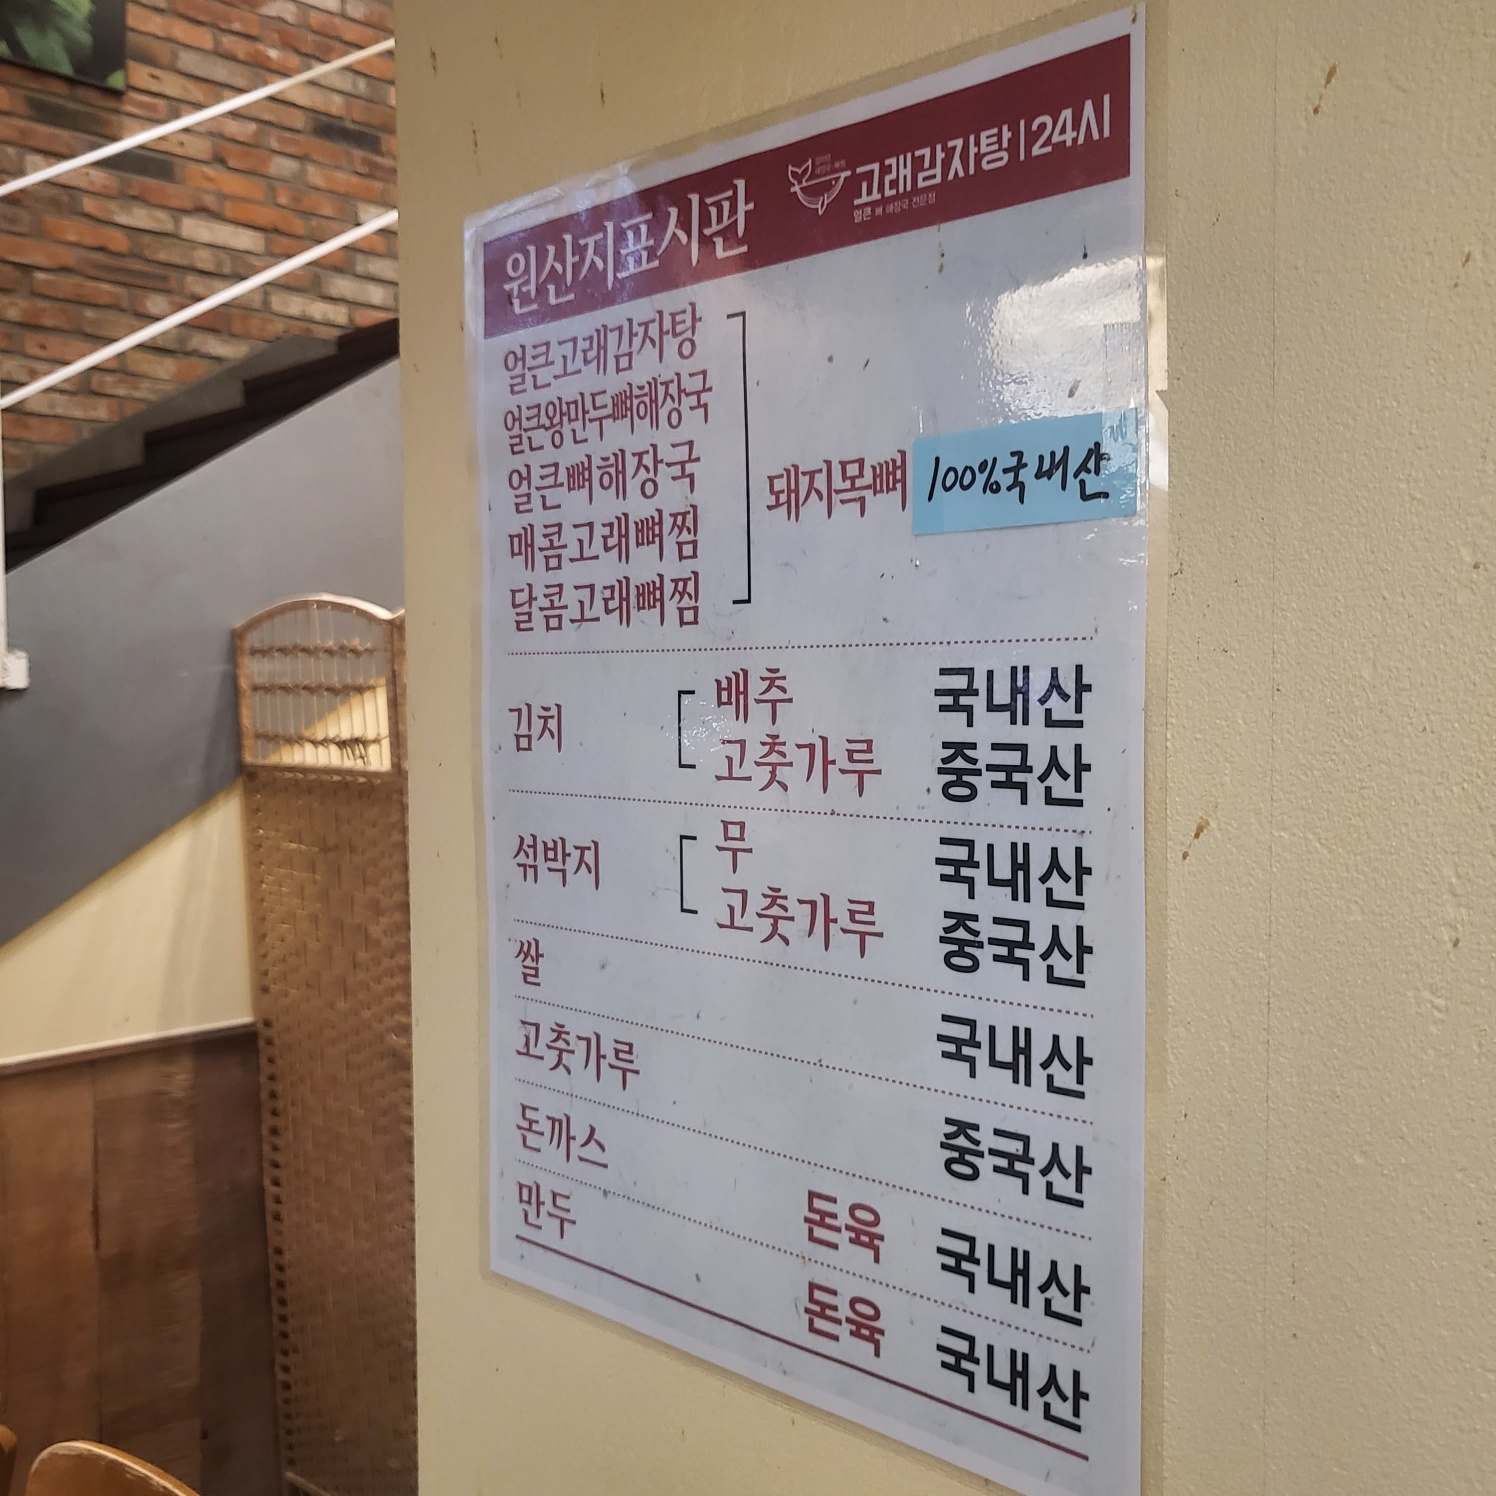 원산지표시판
고래감자탕 | 24시
얼큰 뼈 해장국 전문점
얼큰고래감자탕
얼큰왕만두뼈해장국
얼큰뼈해장국
매콤고래뼈찜
달콤고래뼈찜
돼지목뼈 100%국내산
김치
배추 국내산
고춧가루 중국산
섞박지
무 국내산
고춧가루 중국산
쌀 국내산
고춧가루 중국산
돈까스 돈육 국내산
만두 돈육 국내산